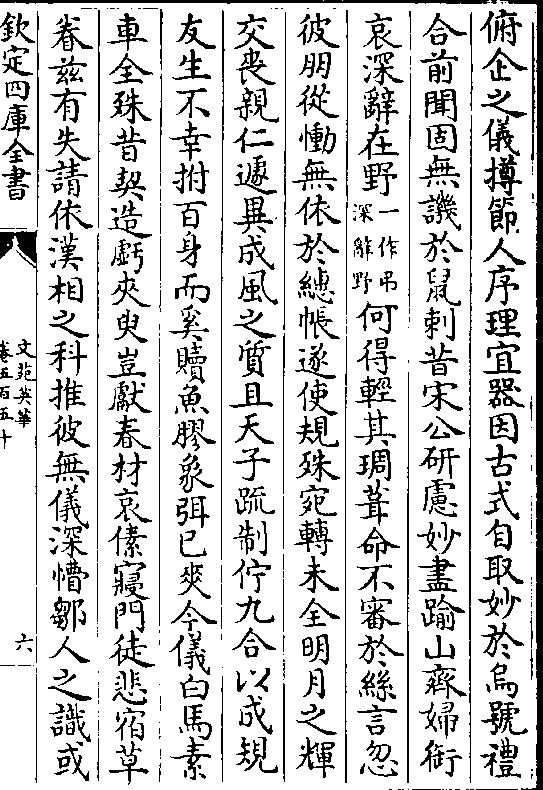 俯企之儀撙節人序理宜器因古式自取妙於烏號禮
合前聞固無譏於鼠刺昔宋公研慮妙盡踰山齊婦銜
哀深辭在野一作弔深辭野何得輕其琱葺命不審於絲言忽
彼朋從慟無依於繐帳遂使規殊宛轉未全明月之輝
交喪親仁遽異成風之質且天子疏制佇九合以成規
友生不幸拊百身而奚贖魚膠象弭已爽今儀白馬素
車全殊昔契造虧夾臾豈獻春材哀傃寢門徒悲宿草
眷兹有失請依漢相之科推彼無儀深懵鄒人之識或
欽定四庫全書
文苑英華
卷五百五十
六